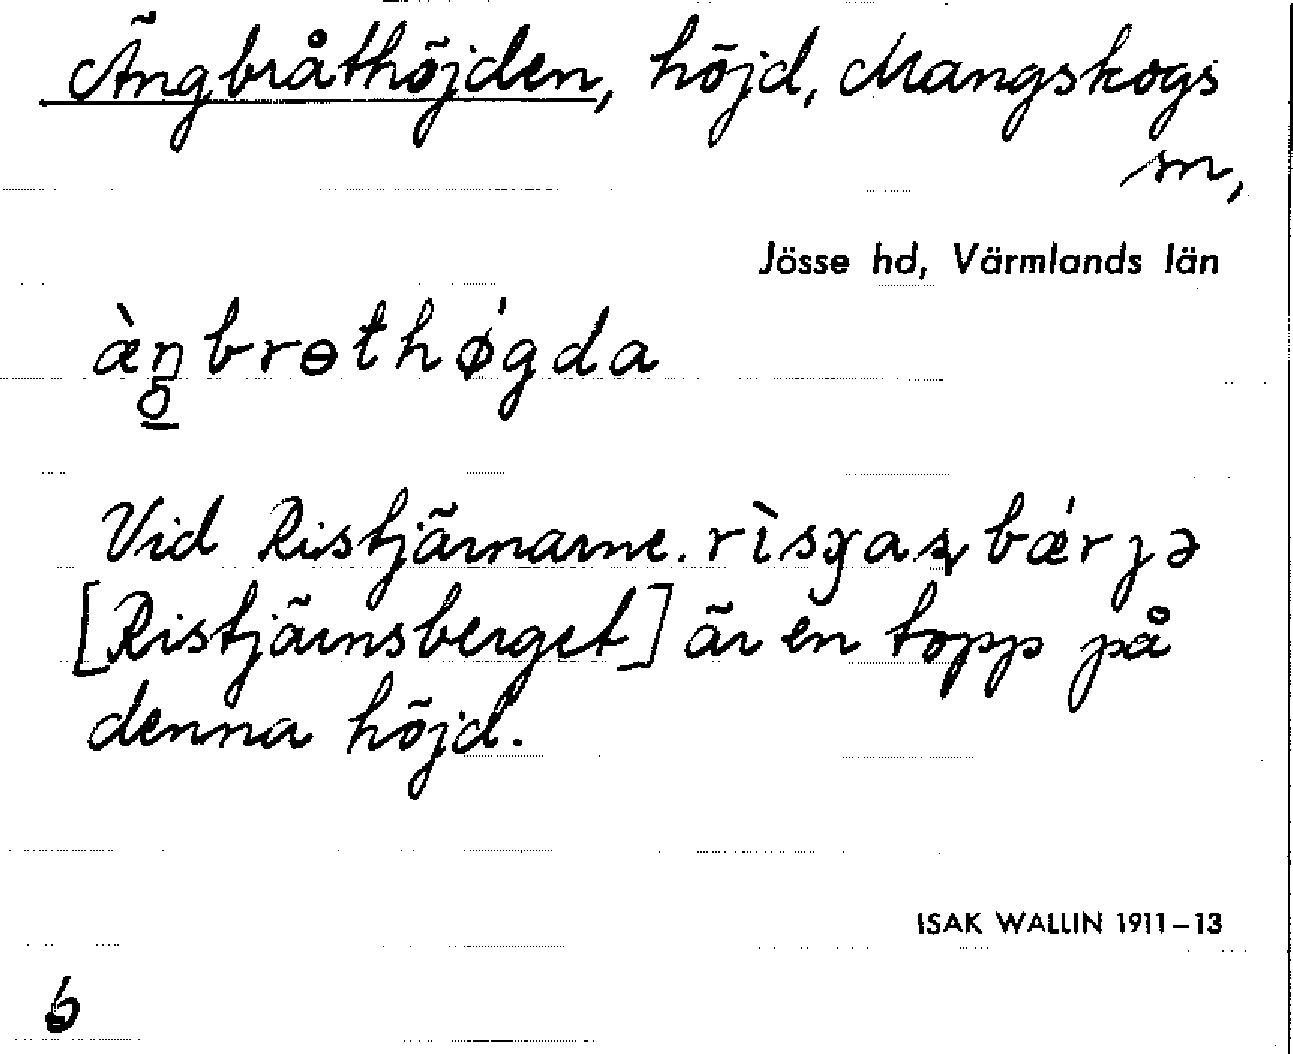 Ängbråthöjden, höjd, Mangskogs
sn,
Jösse hd, Värmlands län
æ̀ŋbrɵthǿgda
Vid Ristjärnarne.
[Ristjärnsberget] är en topp på
denna höjd.
ISAK WALLIN 1911–13
6